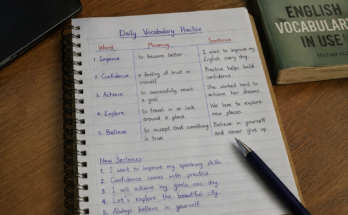 Daily Vocabulary Practice
Word Meaning Sentence
1. Improve to become better I want to improve my
English every day.
2. Confidence a feeling of trust in
oneself Practice helps build
confidence
3. Achieve to successfully reach
a goal She worked hard to
achieve her dreams.
4. Explore to travel in or look
around a place We love to explore
new places
5. Believe to accept that something
is true Believe in yourself
and never give up.
New Sentences:
1. I want to improve my speaking skills.
2. Confidence comes with practice
3. I will achieve my goals one day
4. Let's explore the beautiful city.
5. Always believe in yourself
ENGLISH
VOCABULARY
IN USE